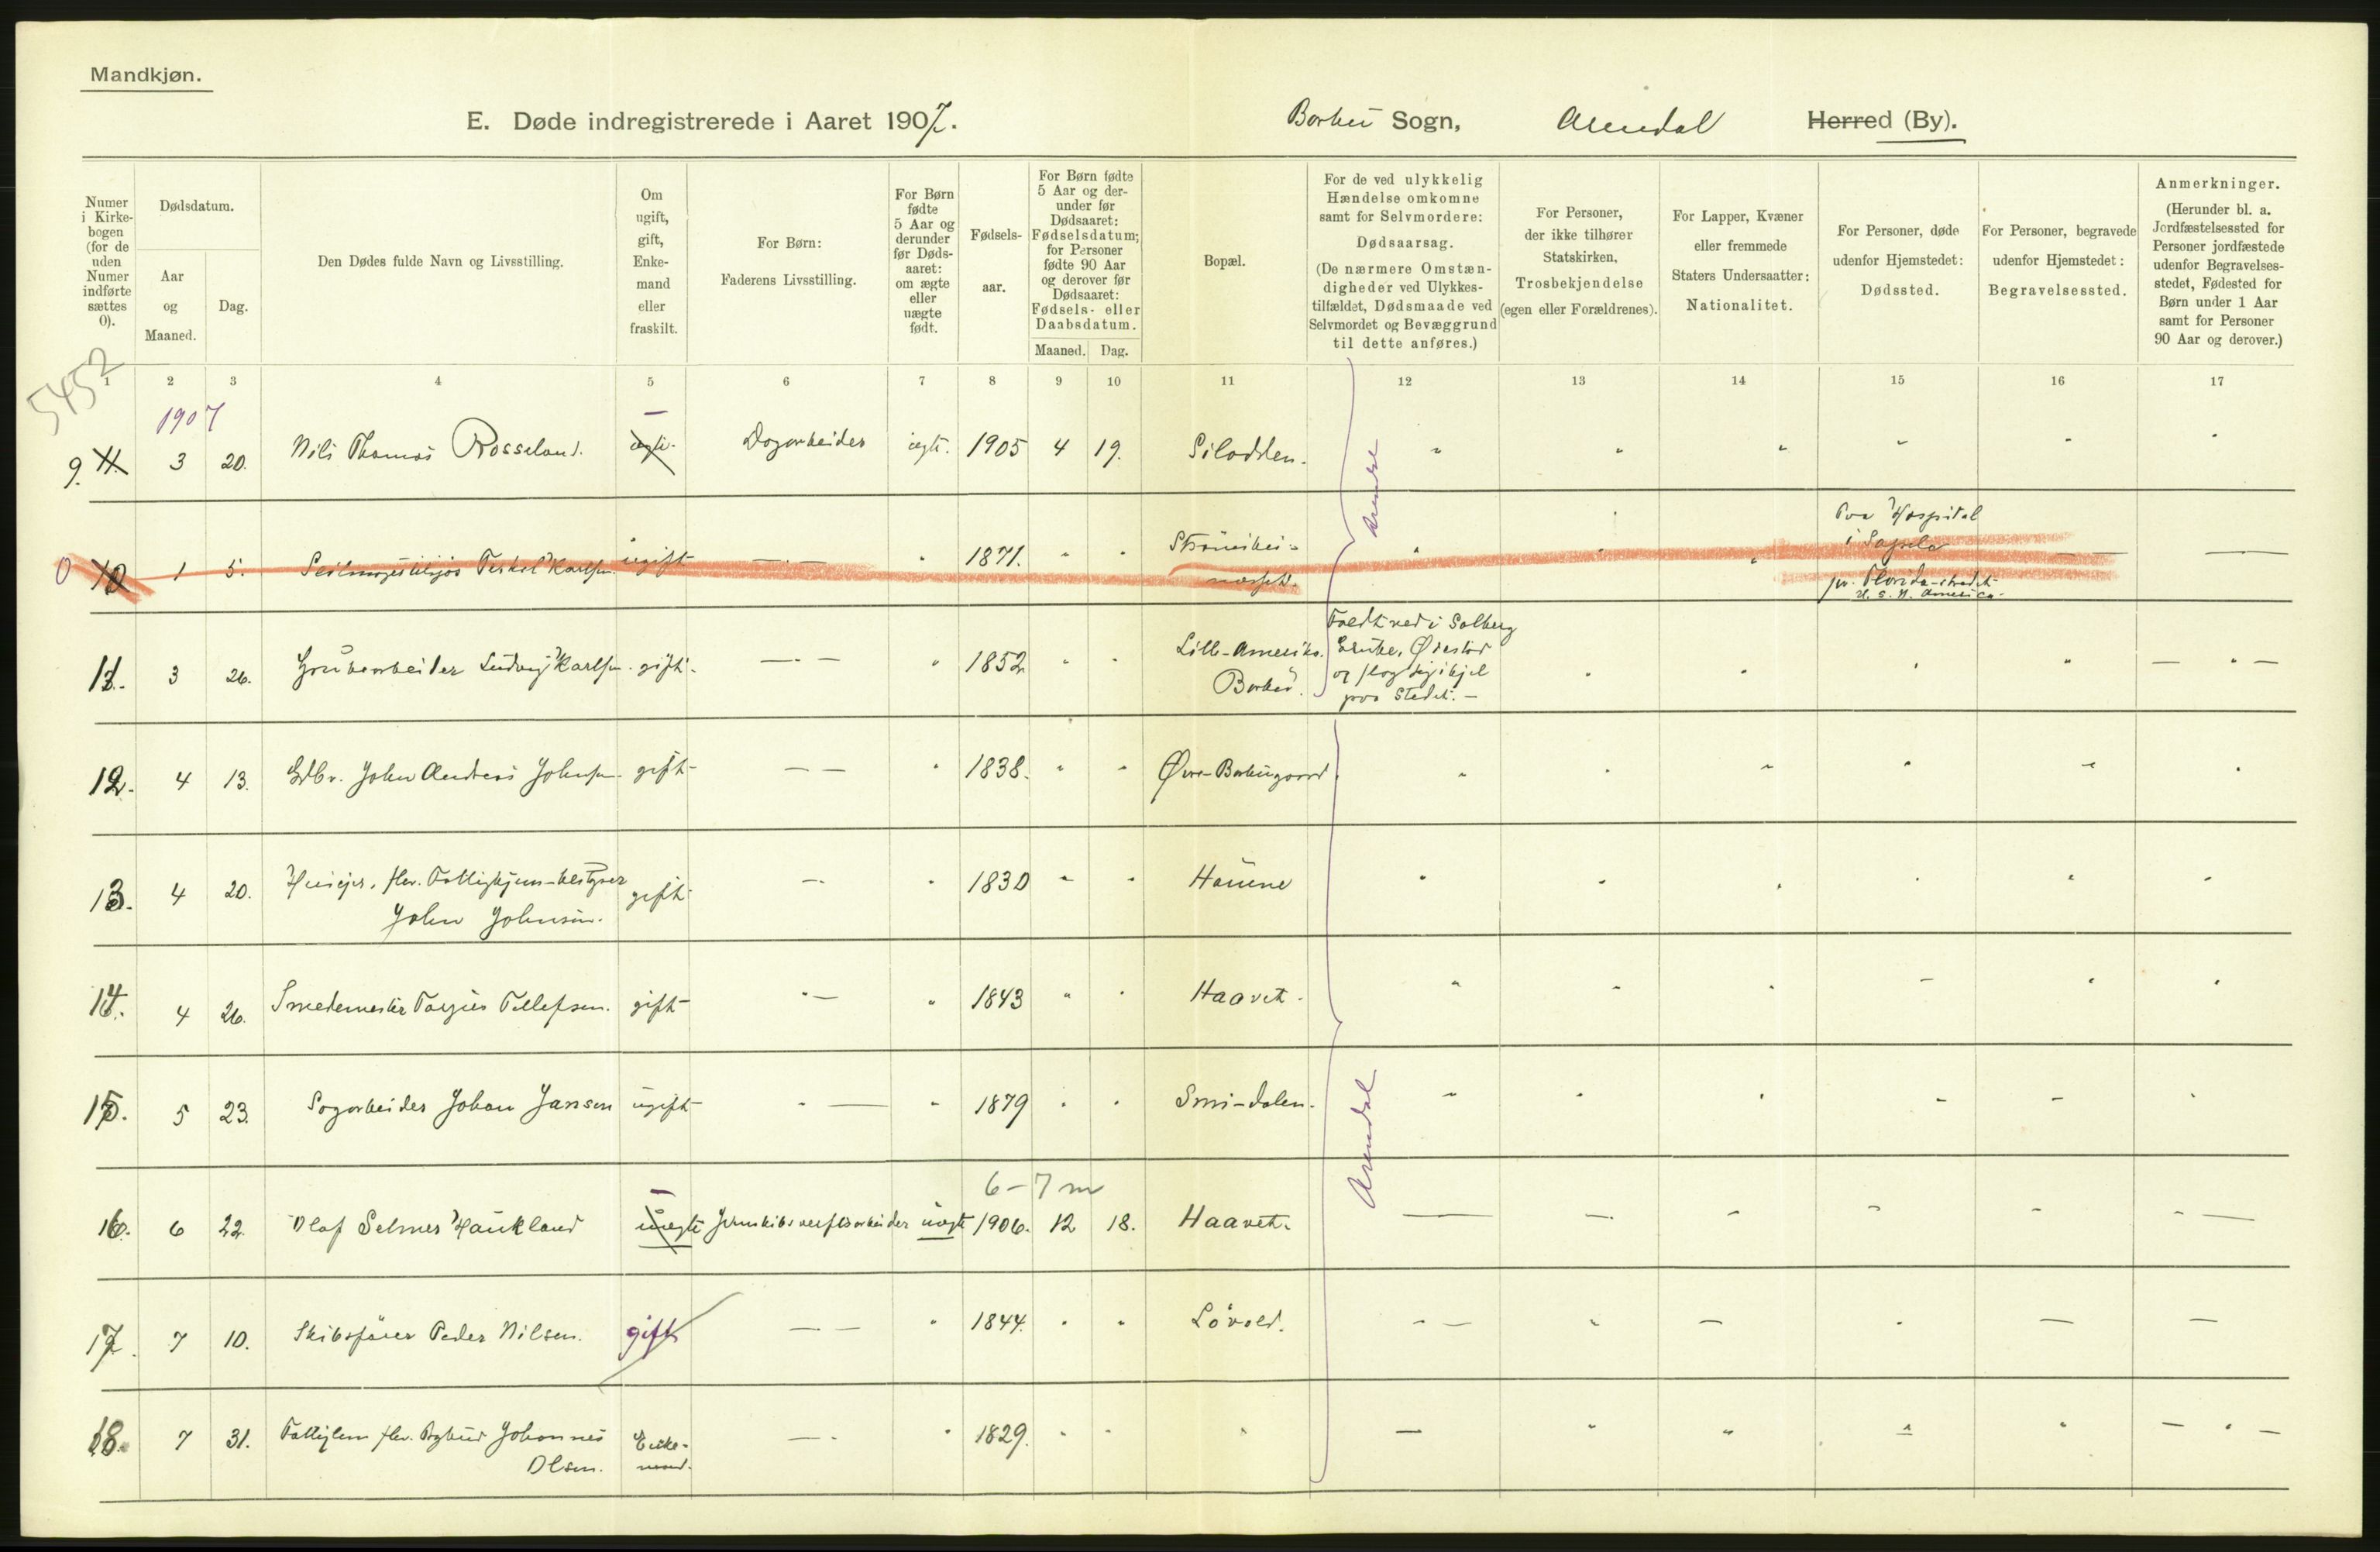 Mandkjøn.
E. Døde indregistrerede i Aaret 1907. Barbu Sogn, Arendal Herred (By).
Numer i Kirkebogen (for de uden Numer indførte sættes 0).
Dødsdatum.
Aar og Maaned.
Dag.
Den Dødes fulde Navn og Livsstilling.
Om ugift, gift, Enkemand eller fraskilt.
For Børn: Faderens Livsstilling.
For Børn fødte 5 Aar og derunder før Dødsaaret: om ægte eller uægte født.
Fødselsaar.
For Børn fødte 5 Aar og derunder før Dødsaaret: Fødselsdatum; for Personer fødte 90 Aar og derover før Dødsaaret: Fødsels- eller Daabsdatum.
Maaned. Dag.
Bopæl.
For de ved ulykkelig Hændelse omkomne samt for Selvmordere: Dødsaarsag. (De nærmere Omstændigheder ved Ulykkestilfældet, Dødsmaade ved Selvmordet og Bevæggrund til dette anføres.)
For Personer, der ikke tilhører Statskirken, Trosbekjendelse (egen eller Forældrenes).
For Lapper, Kvæner eller fremmede Staters Undersaatter: Nationalitet.
For Personer, døde udenfor Hjemstedet: Dødssted.
For Personer, begravede udenfor Hjemstedet: Begravelsessted.
Anmerkninger. (Herunder bl. a. Jordfæstelsessted for Personer jordfæstede udenfor Begravelsesstedet, Fødested for Børn under 1 Aar samt for Personer 90 Aar og derover.)
5452
1 2 3 4 5 6 7 8 9 10 11 12 13 14 15 16 17
1907
9. 11. 3 20. Nils Thomas Rosseland. ægte. Dagarbeider ægte. 1905 4 19. Silodden.
Arendal
0 10 1 5. Terkel Karlsen. ugift — 1871. Paa Hospital
i
pr. Florida-stredet
U. S. N. America.
11. 3 26. Grubearbeider Ludvig Karlsen. gift. — 1852 Lille-Amerika. Barbu. Faldt ned i Solberg
Grube, Øiestad
og slog sig ihjel
paa Stedet. —
12. 4 13. Gdbr. John Andreas Johnsen. gift — 1838. Øvre-Barbugaard.
13. 4 20. Huseier, fhv. Fattighjem-bestyrer
John Johnsen. gift — 1830 Haüene
14. 4 26. Smedemester Tarjus Tellefsen. gift — 1843 Haavet.
15. 5 23. Sagarbeider Johan Jansen ugift — 1879 Smi-dalen.
Arendal
6-7 m
16. 6 22. Olaf Selmer Haukland uægte Jernskibsverftsarbeider uægte 1906. 12 18. Haavet.
17. 7 10. Skibsfører Peder Nilsen. gift — 1844. Løvold.
18. 7 31. Fattiglem fhv. Johannes
Olsen. Enkemand. — 1829.